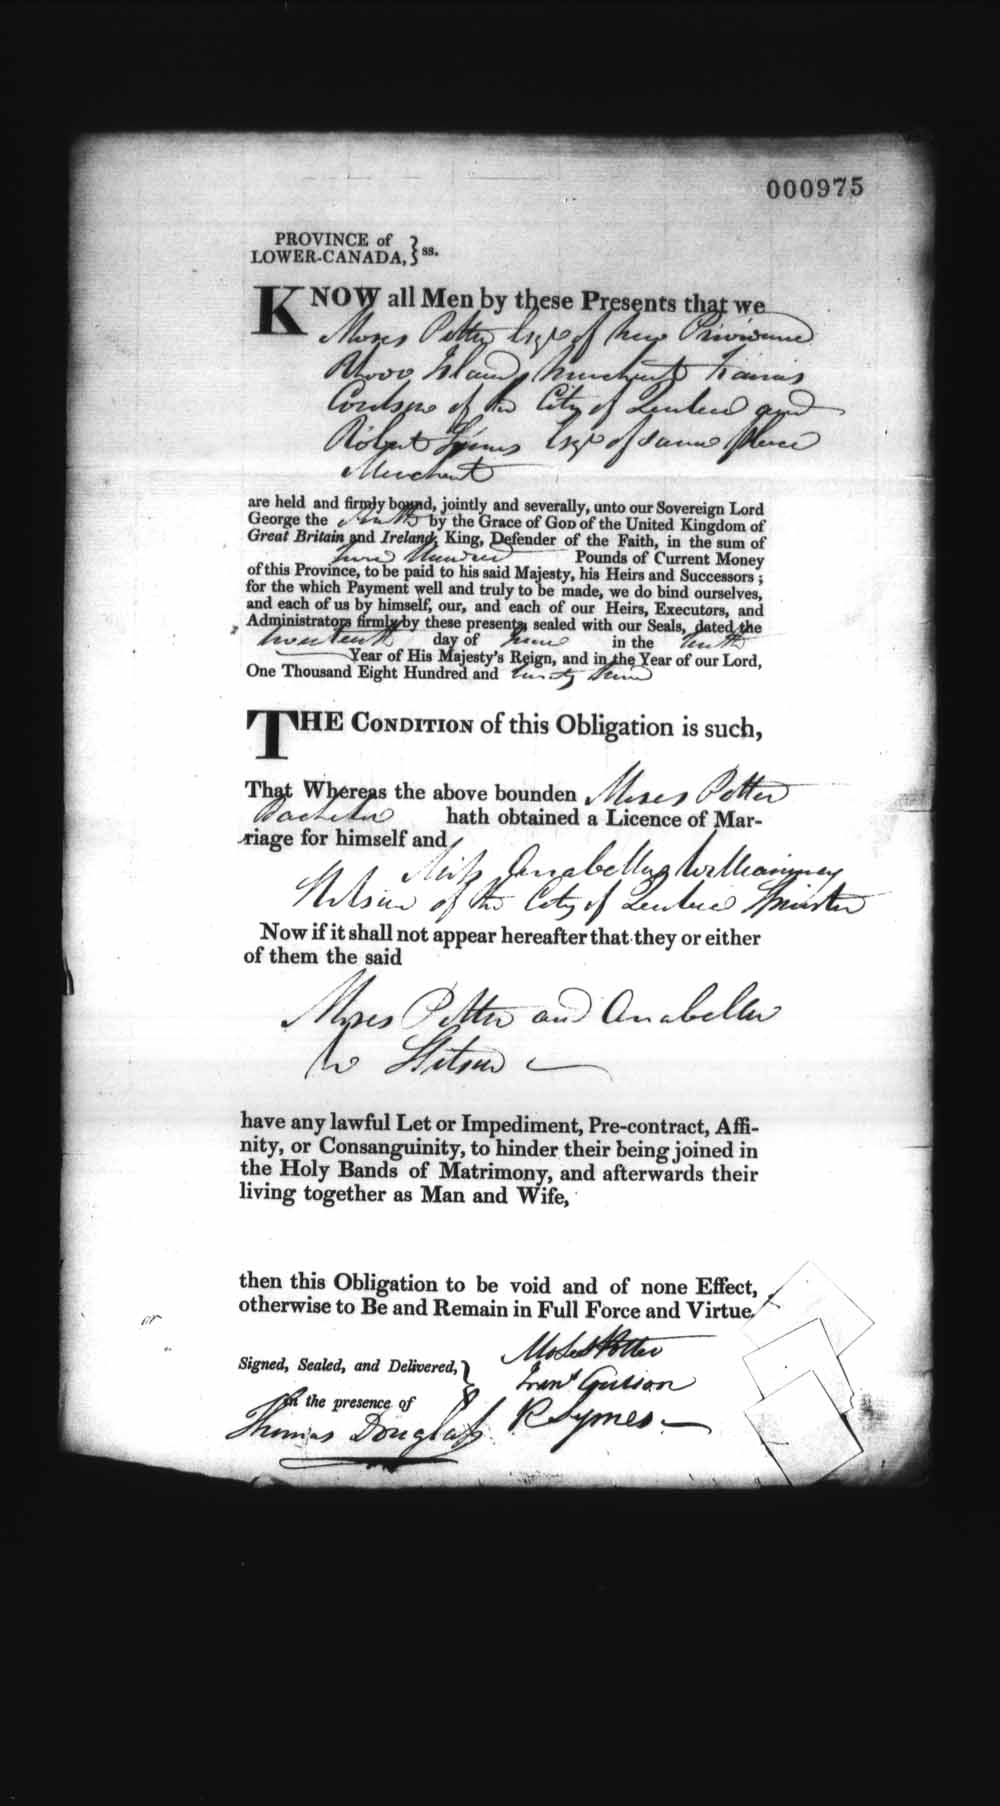 000975
PROVINCE of
LOWER-CANADA, } ss.
KNOW all Men by these Presents that we
Moses Potter Esqr of New Providence
Island, Merchant Francis
of the City of Quebec and
Robert Symes Esqr of same place
Merchant
are held and firmly bound, jointly and severally, unto our Sovereign Lord
George the by the Grace of GOD of the United Kingdom of
Great Britain and Ireland, King, Defender of the Faith, in the sum of
two Hundred Pounds of Current Money
of this Province, to be paid to his said Majesty, his Heirs and Successors;
for the which Payment well and truly to be made, we do bind ourselves,
and each of us by himself, our, and each of our Heirs, Executors, and
Administrators firmly by these presents sealed with our Seals, dated the
day of June in the
Year of His Majesty's Reign, and in the Year of our Lord,
One Thousand Eight Hundred and twenty three
THE CONDITION of this Obligation is such,
That Whereas the above bounden Moses Potter
Bachelor hath obtained a Licence of Mar-
riage for himself and
Miss Anabella
of the City of Quebec Spinster
Now if it shall not appear hereafter that they or either
of them the said
Moses Potter and Anabella
W Stetson
have any lawful Let or Impediment, Pre-contract, Affi-
nity, or Consanguinity, to hinder their being joined in
the Holy Bands of Matrimony, and afterwards their
living together as Man and Wife,
then this Obligation to be void and of none Effect,
otherwise to Be and Remain in Full Force and Virtue.
Moses Potter
Signed, Sealed, and Delivered, }
Frans
In the presence of
R Symes
Thomas Douglass